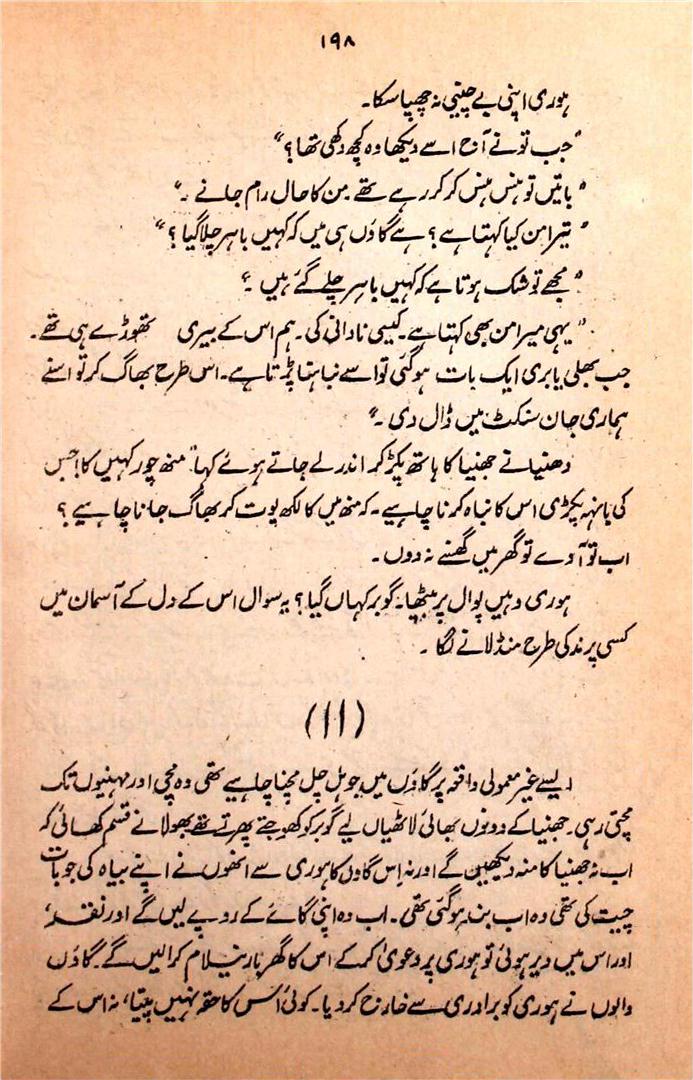 ۱۹۸
ہوری اپنی بے چینی نہ چھپا سکا۔
"جب تو نے آج اسے دیکھا وہ کچھ دکھی تھا؟"
"باتیں تو ہنس ہنس کر کر رہے تھے من کا حال رام جانے۔"
"تیرا من کیا کہتا ہے؟ ہے گاؤں ہی میں کہ کہیں باہر چلا گیا؟"
"مجھے تو شک ہوتا ہے کہ کہیں باہر چلے گئے ہیں۔"
"یہی میرا من بھی کہتا ہے۔ کیسی نادانی کی۔ ہم اس کے بیری تھوڑے ہی تھے۔
جب بھلی یا بری ایک بات ہو گئی تو اسے نباہنا پڑتا ہے۔ اس طرح بھاگ کر تو اسنے
ہماری جان سنکٹ میں ڈال دی۔"
دھنیا نے جھنیا کا ہاتھ پکڑ کر اندر لے جاتے ہوئے کہا "منھ چور کہیں کا! جس
کی بانہہ پکڑی اس کا نباہ کرنا چاہیے۔ کہ منھ میں کالکھ پوت کر بھاگ جانا چاہیے؟
اب تو آوے تو گھر میں گھسنے نہ دوں۔
ہوری وہیں پوال پر بیٹھا۔ گوبر کہاں گیا؟ یہ سوال اس کے دل کے آسمان میں
کسی پرند کی طرح منڈلانے لگا۔
(۱۱)
ایسے غیر معمولی واقعہ پر گاؤں میں جو ہل چل مچنا چاہیے تھی وہ مچی اور مہینوں تک
مچتی رہی۔ جھنیا کے دونوں بھائی لاٹھیاں لیے گوبر کو کھوجتے پھرتے تھے بھولا نے قسم کھائی کہ
اب نہ جھنیا کا منہ دیکھیں گے اور نہ اس گاؤں کا ہوری سے انھوں نے اپنے بیاہ کی جو بات
چیت کی تھی وہ اب بند ہو گئی تھی۔ اب وہ اپنی گائے کے روپے لیں گے اور نقد،
اور اس میں دیر ہوئی تو ہوری پر دعویٰ کر کے اس کا گھر بار نیلام کرا لیں گے۔ گاؤں
والوں نے ہوری کو برادری سے خارج کر دیا۔ کوئی اُس کا حقہ نہیں پیتا، نہ اس کے